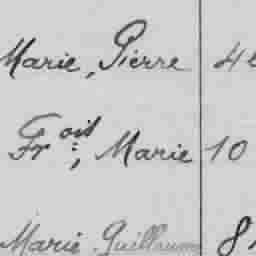 Marie, Pierre 4
Fr ois:, Marie 10
Marie Guillaume 8